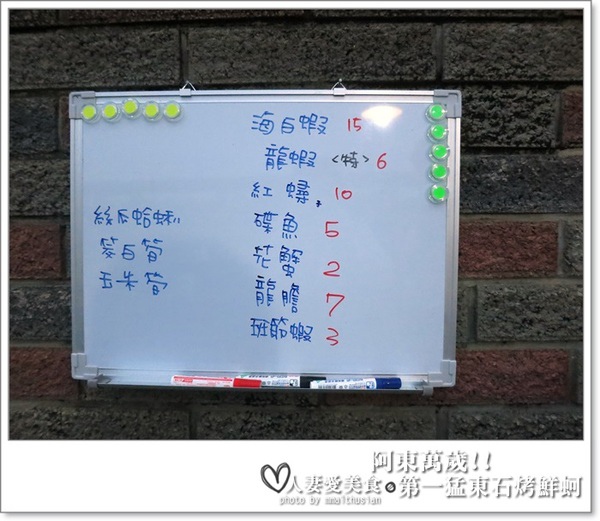 海白蝦 15
龍蝦 <特> 6
紅蟳 10
碟魚 5
花蟹 2
龍膽 7
班節蝦 3
絲瓜蛤蜊
筊白筍
玉米筍
阿東萬歲!!
人妻愛美食 第一猛東石烤鮮蚵
photo by mmalthusian